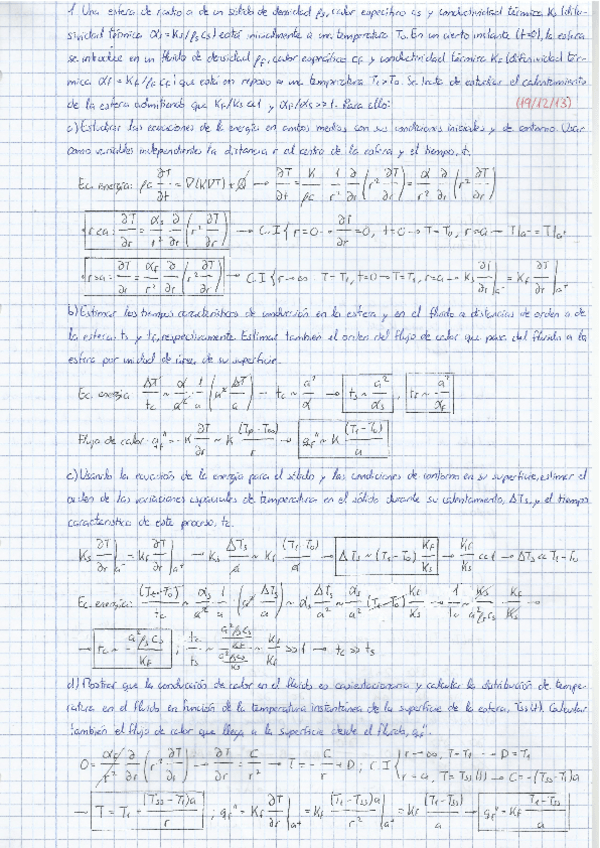 1. Una esfera de radio a de un sólido de densidad ρs, calor específico cs y conductividad térmica Ks (difu-
sividad térmica αs = Ks/ρs cs) está inicialmente a una temperatura To. En un cierto instante (t=0), la esfera
se introduce en un fluido de densidad ρf, calor específico cf y conductividad térmica Kf (difusividad tér-
mica αf = Kf/ρf cf) que está en reposo a una temperatura T1 > To. Se trata de estudiar el calentamiento
de la esfera admitiendo que Kf/Ks << 1 y αf/αs >> 1. Para ello: (19/12/13)
a) Estudiar las ecuaciones de la energía en ambos medios con sus condiciones iniciales y de entorno. Usar
como variables independientes la distancia r al centro de la esfera y el tiempo, t.
Ec. energía: ρc ∂T/∂t = ∇(K∇T) + Q → ∂T/∂t = K/ρc 1/r² ∂/∂r (r² ∂T/∂r) = α/r² ∂/∂r (r² ∂T/∂r)
r<a: ∂T/∂r = αs/r² ∂/∂r (r² ∂T/∂r) → C.I { r=0 → ∂T/∂r = 0, t=0 → T=To, r=a → T|a⁻ = T|a⁺
r>a: ∂T/∂r = αf/r² ∂/∂r (r² ∂T/∂r) → C.I { r→∞ T=T1, t=0 → T=T1, r=a → Ks ∂T/∂r|a⁻ = Kf ∂T/∂r|a⁺
b) Estimar los tiempos característicos de conducción en la esfera y en el fluido a distancias de orden a de
la esfera: ts y tf, respectivamente. Estimar también el orden del flujo de calor que pasa del fluido a la
esfera por unidad de área de su superficie.
Ec. energía ΔT/tc ~ α/a² 1/a (a² ΔT/a) → tc ~ a²/α → ts ~ a²/αs, tf ~ a²/αf
Flujo de calor: qf" = -K ∂T/∂r ~ K (Tp-T∞)/r → qf" ~ K (T1-To)/a
c) Usando la ecuación de la energía para el sólido y las condiciones de contorno en su superficie, estimar el
orden de las variaciones espaciales de temperatura en el sólido durante su calentamiento, ΔTs, y el tiempo
característico de este proceso, tc.
Ks ∂T/∂r|a⁻ = Kf ∂T/∂r|a⁺ → Ks ΔTs/a ~ Kf (T1-To)/a → ΔTs ~ (T1-To) Kf/Ks → Kf/Ks << 1 → ΔTs << T1-To
Ec. energía: (T1-To)/tc ~ αs/a² 1/a (a² ΔTs/a) ~ αs ΔTs/a² ~ αs/a² (T1-To) Kf/Ks → 1/tc ~ Ks/a²ρs cs Kf/Ks →
→ tc ~ a²ρs cs/Kf ; tc/ts ~ Ks/Kf >> 1 → tc >> ts
d) Mostrar que la conducción de calor en el fluido es cuasiestacionaria y calcular la distribución de tempe-
ratura en el fluido en función de la temperatura instantánea de la superficie de la esfera, Tss(t). Calcular
también el flujo de calor que llega a la superficie desde el fluido, qf".
0 = αf/r² ∂/∂r (r² ∂T/∂r) → ∂T/∂r = C/r² → T = -C/r + D ; C.I { r→∞, T=T1 → D=T1
r=a, T=Tss(t) → C=-(Tss-T1)a
→ T = T1 + (Tss-T1)a/r ; qf" = Kf ∂T/∂r|a⁺ = Kf (T1-Tss)a/r²|a⁺ = Kf (T1-Tss)/a → qf" = Kf T1-Tss/a